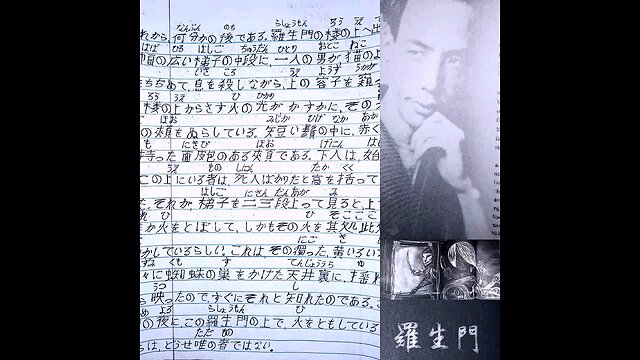 なんぷん のち らしょうもん ろう うえ で
れから、何分かの後である。羅生門の楼の上へ出
はば ひろ はしご ちゅうだん ひとり おとこ ねこ
幅の広い梯子の中段に、一人の男が、猫のよ
いき ころ うえ ようす うかが
をちぢめて、息を殺しながら、上の容子を窺
ろう うえ ひ ひかり
楼の上からさす火の光が、かすかに、その
ほお みじか ひげ なか あか
の頬をぬらしている。短い鬚の中に、赤く
も にきび ほお げにん は
持った面皰のある頬である。下人は、始
うえ もの しにん たか くく
この上にいる者は、死人ばかりだと高を括って
はしご にさんだんあが み
た。それが、梯子を二三段上って見ると、上
れ ひ ひ そこここ
か火をとぼして、しかもその火を其処此
にご き
かしているらしい。これは、その濁った、黄いろい
ずみ くも す てんじょううら ゆ
々に蜘蛛の巣をかけた天井裏に、揺れ
うつ し
ら映ったので、すぐにそれと知れたのである。こ
め よる らしょうもん ひ
の夜に、この羅生門の上で、火をともしている
ただ もの
らは、どうせ唯の者ではない。
羅生門